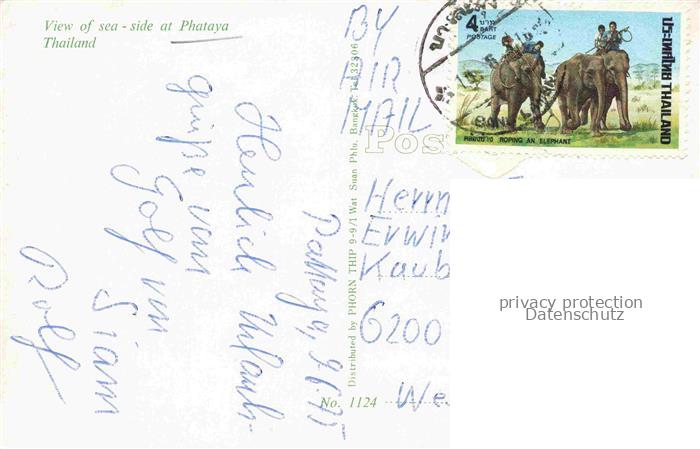 View of sea - side at Phataya
Thailand
BY
AIR
MAIL
4 บาท
BAHT
POSTAGE
ประเทศไทย THAILAND
ROPING AN ELEPHANT
Post
Pattaya, 9.6.75
Herzliche Urlaubs-
grüße vom
Golf von
Siam
Rolf
Distributed by PHORN THIP 9-9/1 Wat Suan Phlu. Bangkok. Tel 32306
No. 1124
Herrn
Erwin
Kaub
6200
We
privacy protection
Datenschutz